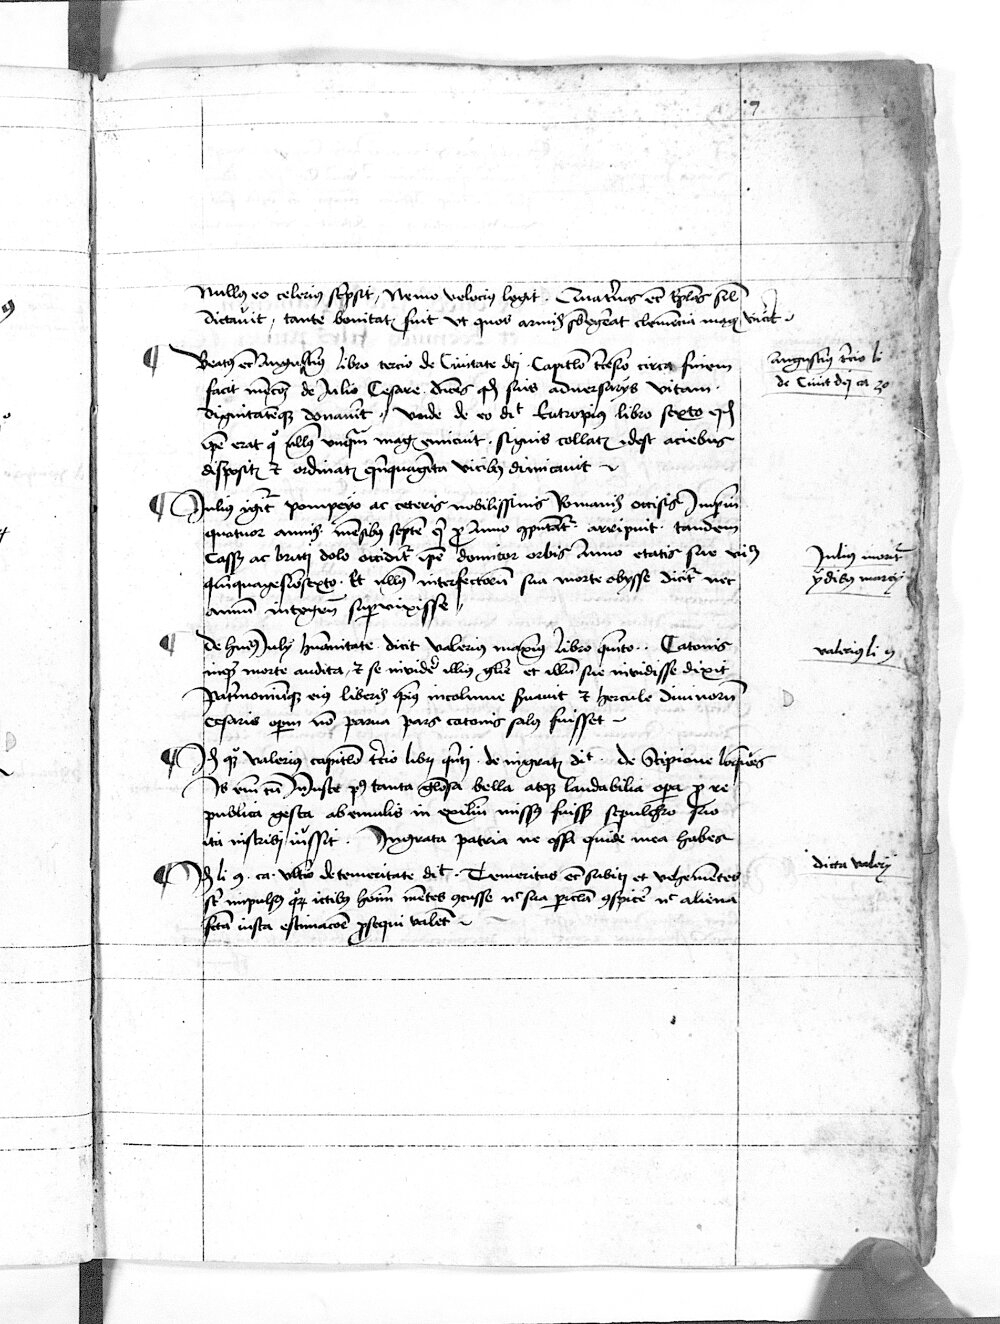 7
Nullus eo celerius scripsit, Nemo velocius legit. Quaternas etiam epistolas simul
dictavit, tante bonitatis fuit ut quos armis subegerat clemencia magis vicit.
¶ Beatus etiam Augustinus libro tercio de Civitate dei Capitulo tricesimo circa finem
facit mencionem de Julio Cesare dicens quod suis adversariis vitam
dignitatemque donaverit, Unde de eo dicit Eutropius libro sexto quod
ipse erat quo nullus unquam magis emicuit. signis collatis idest aciebus
dispositis et ordinatis quinquaginta vicibus dimicavit
¶ Julius igitur pompeyo ac ceteris nobilissimis Romanis occisis Imperium
quatuor annis mensibus septem arripuit. tandem
Cassii ac bruti dolo occiditur ipse domitor orbis Anno etatis sue
quinquagesimosexto. Et nullum interfectorum sua morte obysse dicitur nec
annum integrum supervixisse
¶ De huius Julii humanitate dicit Valerius maximus libro quinto. Catonis
inquit morte audita, et se invidere illius glorie et illum sue invidisse dixit
Patrimoniumque eius liberis ipsius incolume servavit et hercule divinorum
Cesaris operum non parva pars catonis salus fuisset
¶ Valerius capitulo tercio libri quinti de ingratis dicit. de Scipione loquens
Is enim cum Injuste post tanta gloriosa bella atque laudabilia opera pro re
publica gesta ab emulis in exilium missus fuisset sepulchro suo
ita inscribi iussit. Ingrata patria ne ossa quidem mea habes
¶ Idem li 9. ca. ultimo de temeritate dicit. Temeritas etiam subiti et vehementes
sunt impulsus quorum ictibus hominum mentes concusse nec sua pericula conspicere nec aliena
facta iusta estimacione prosequi valent
Augustinus tercio li
de Civit dei ca 30
Julius moritur
ydibus marcii
valerius li v
dicta valerii